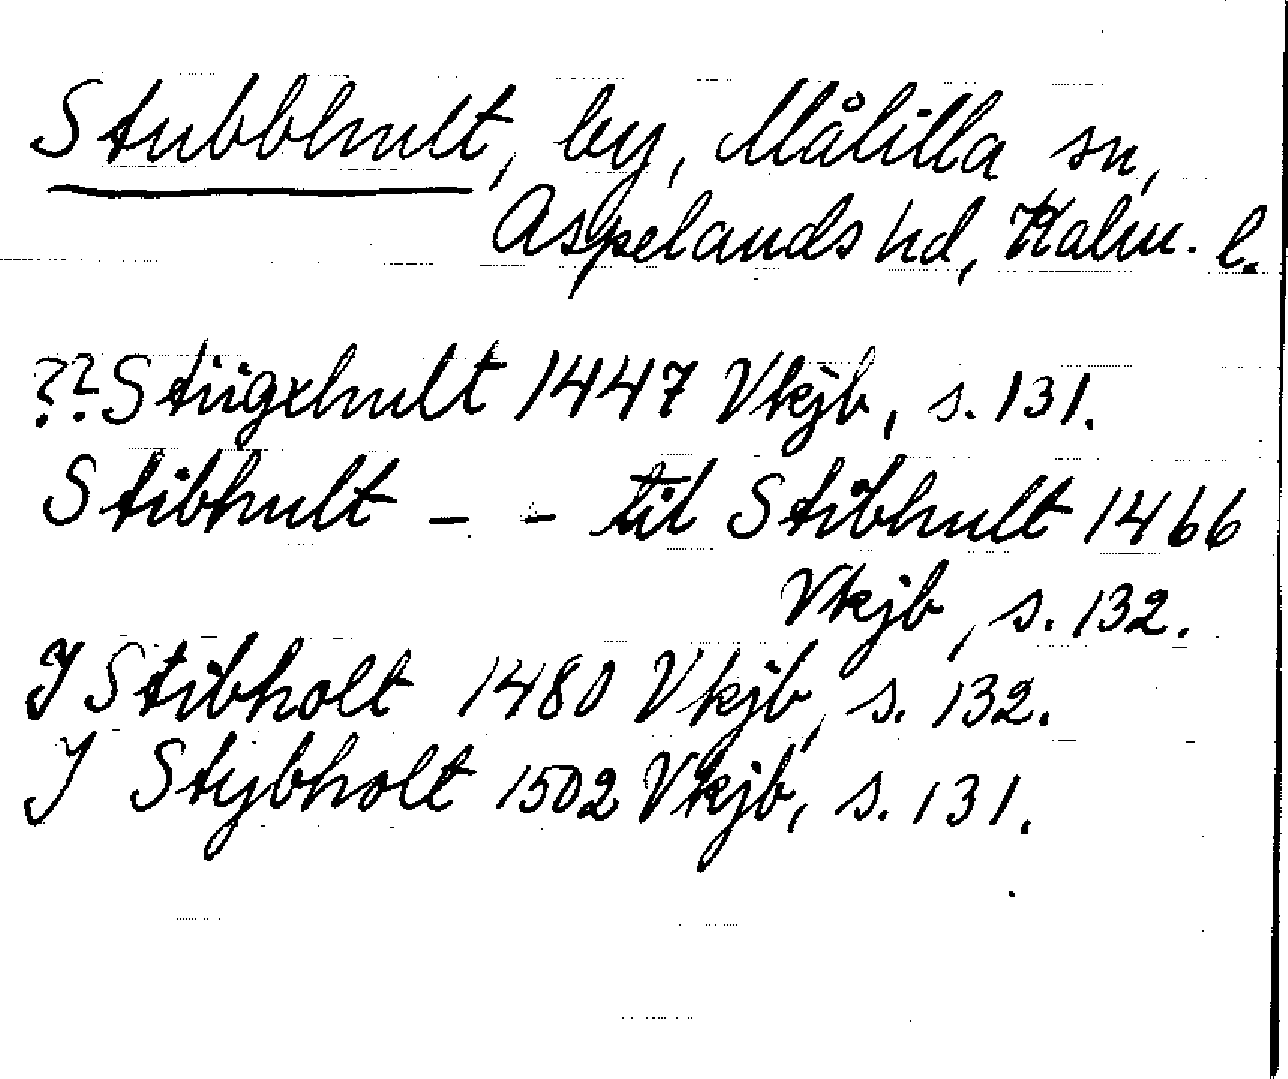 Stubbhult, by, Målilla sn,
Aspelands hd, Kalm. l.
??Stiigxhult 1447 Vkjb, s. 131.
Stibhult – – til Stibhult 1466
Vkjb, s. 132.
J Stibholt 1480 Vkjb, s. 132.
J Stybholt 1502 Vkjb, s. 131.